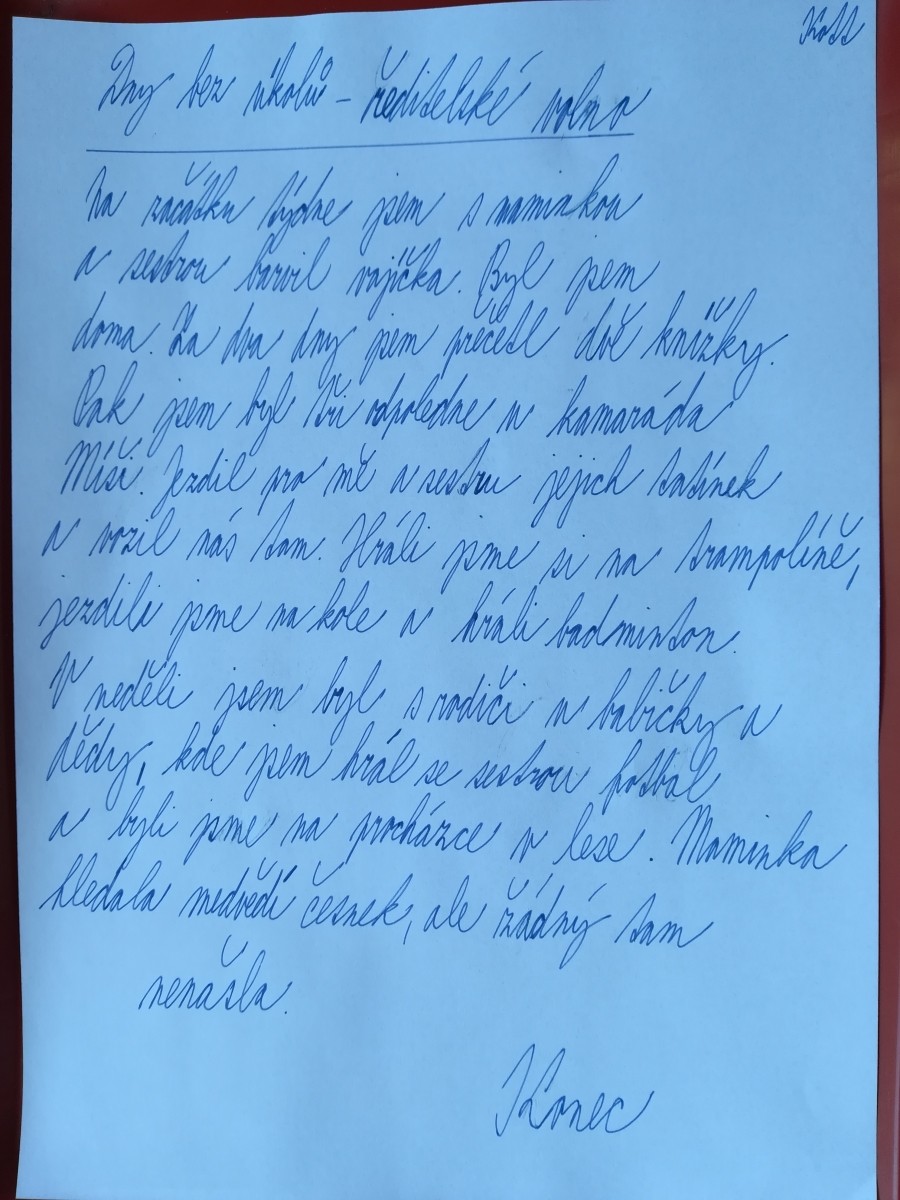 Kott
Dny bez úkolů - ředitelské volno
Na začátku týdne jsem s maminkou
a sestrou barvil vajíčka. Byl jsem
doma. Za dva dny jsem přečetl dvě knížky.
Pak jsem byl tři odpoledne u kamaráda
Míši. Jezdil pro mě a sestru jejich tatínek
a vozil nás tam. Hráli jsme si na trampolíně,
jezdili jsme na kole a hráli badminton.
V neděli jsem byl s rodiči u babičky a
dědy, kde jsem hrál se sestrou fotbal
a byli jsme na procházce v lese. Maminka
hledala medvědí česnek, ale žádný tam
nenašla.
Konec